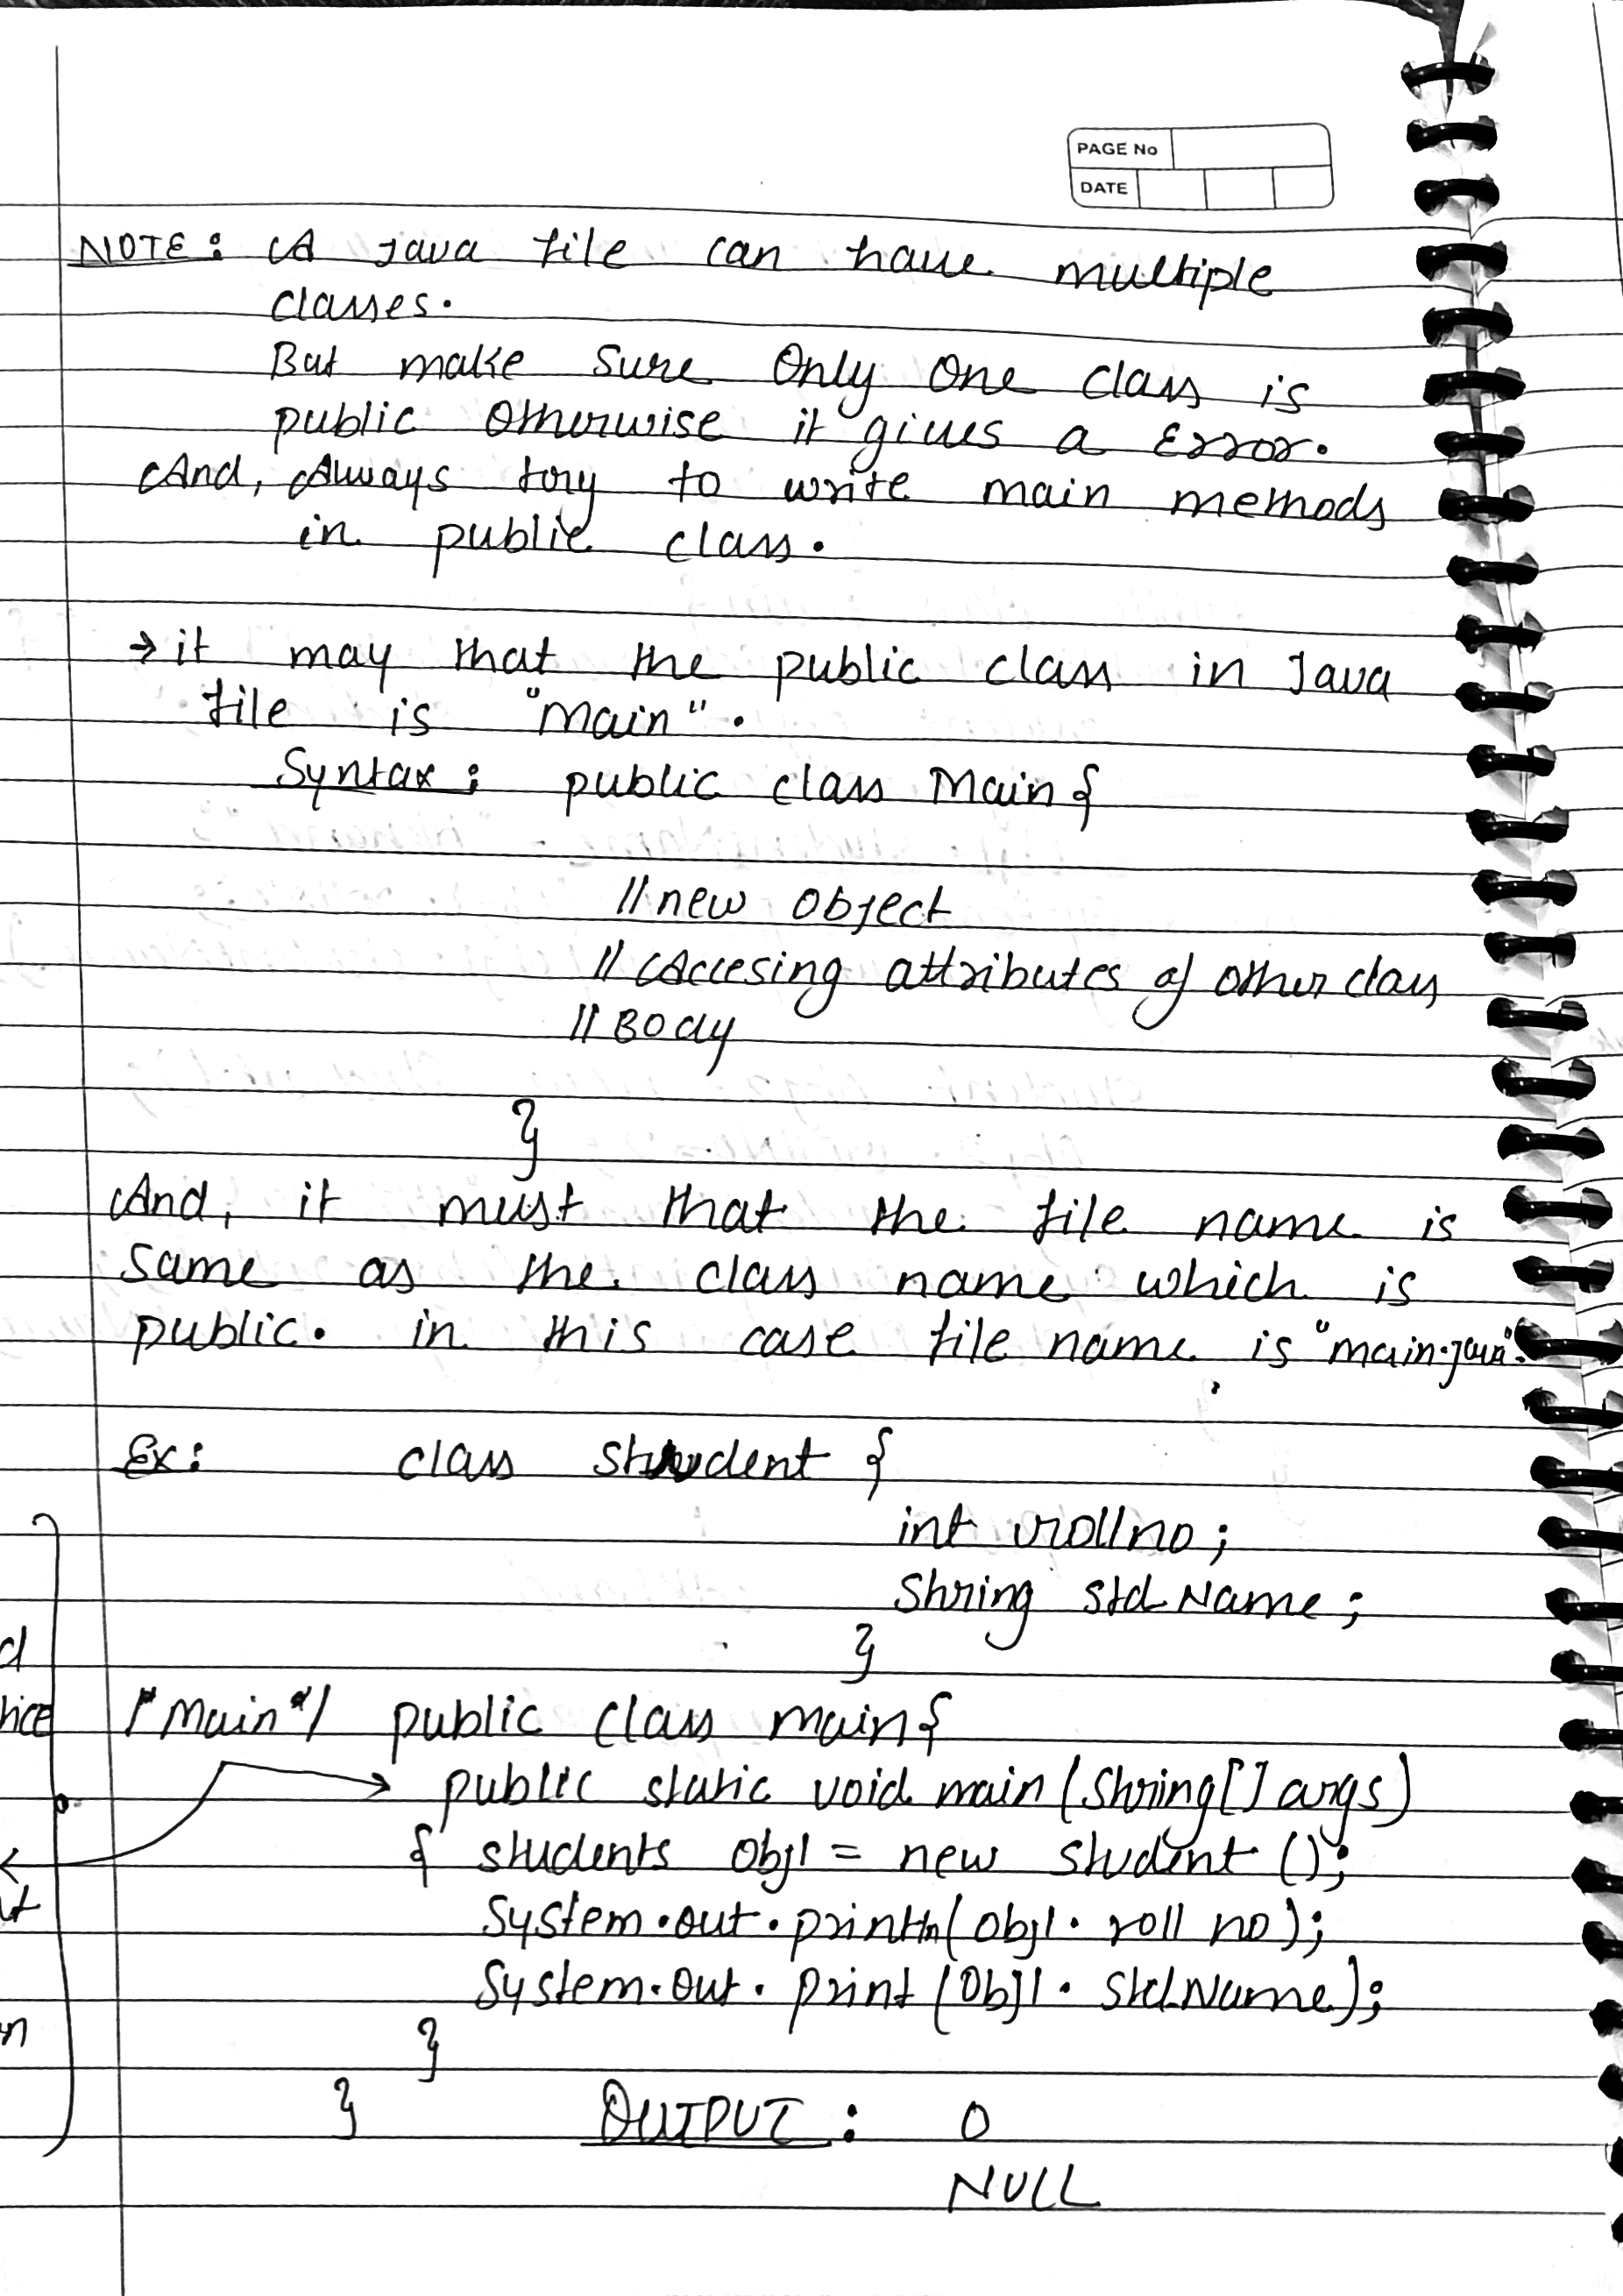 PAGE No
DATE
NOTE: A Java file can have multiple
classes.
But make sure Only One class is
public Otherwise it gives a Error.
And, Always try to write main methods
in public class.
→ it may that the public class in Java
file is "main".
Syntax: public class Main {
// new object
// Accesing attributes of other class
// Body
}
And, it must that the file name is
same as the class name which is
public. in this case file name is "main.java".
Ex: class student {
int rollno;
String stdName;
}
/*Main*/ public class main {
public static void main (String[] args)
{ students obj1 = new student ();
System.out.println(obj1. roll no);
System.out. print (Obj1. stdName);
}
}
OUTPUT: 0
NULL